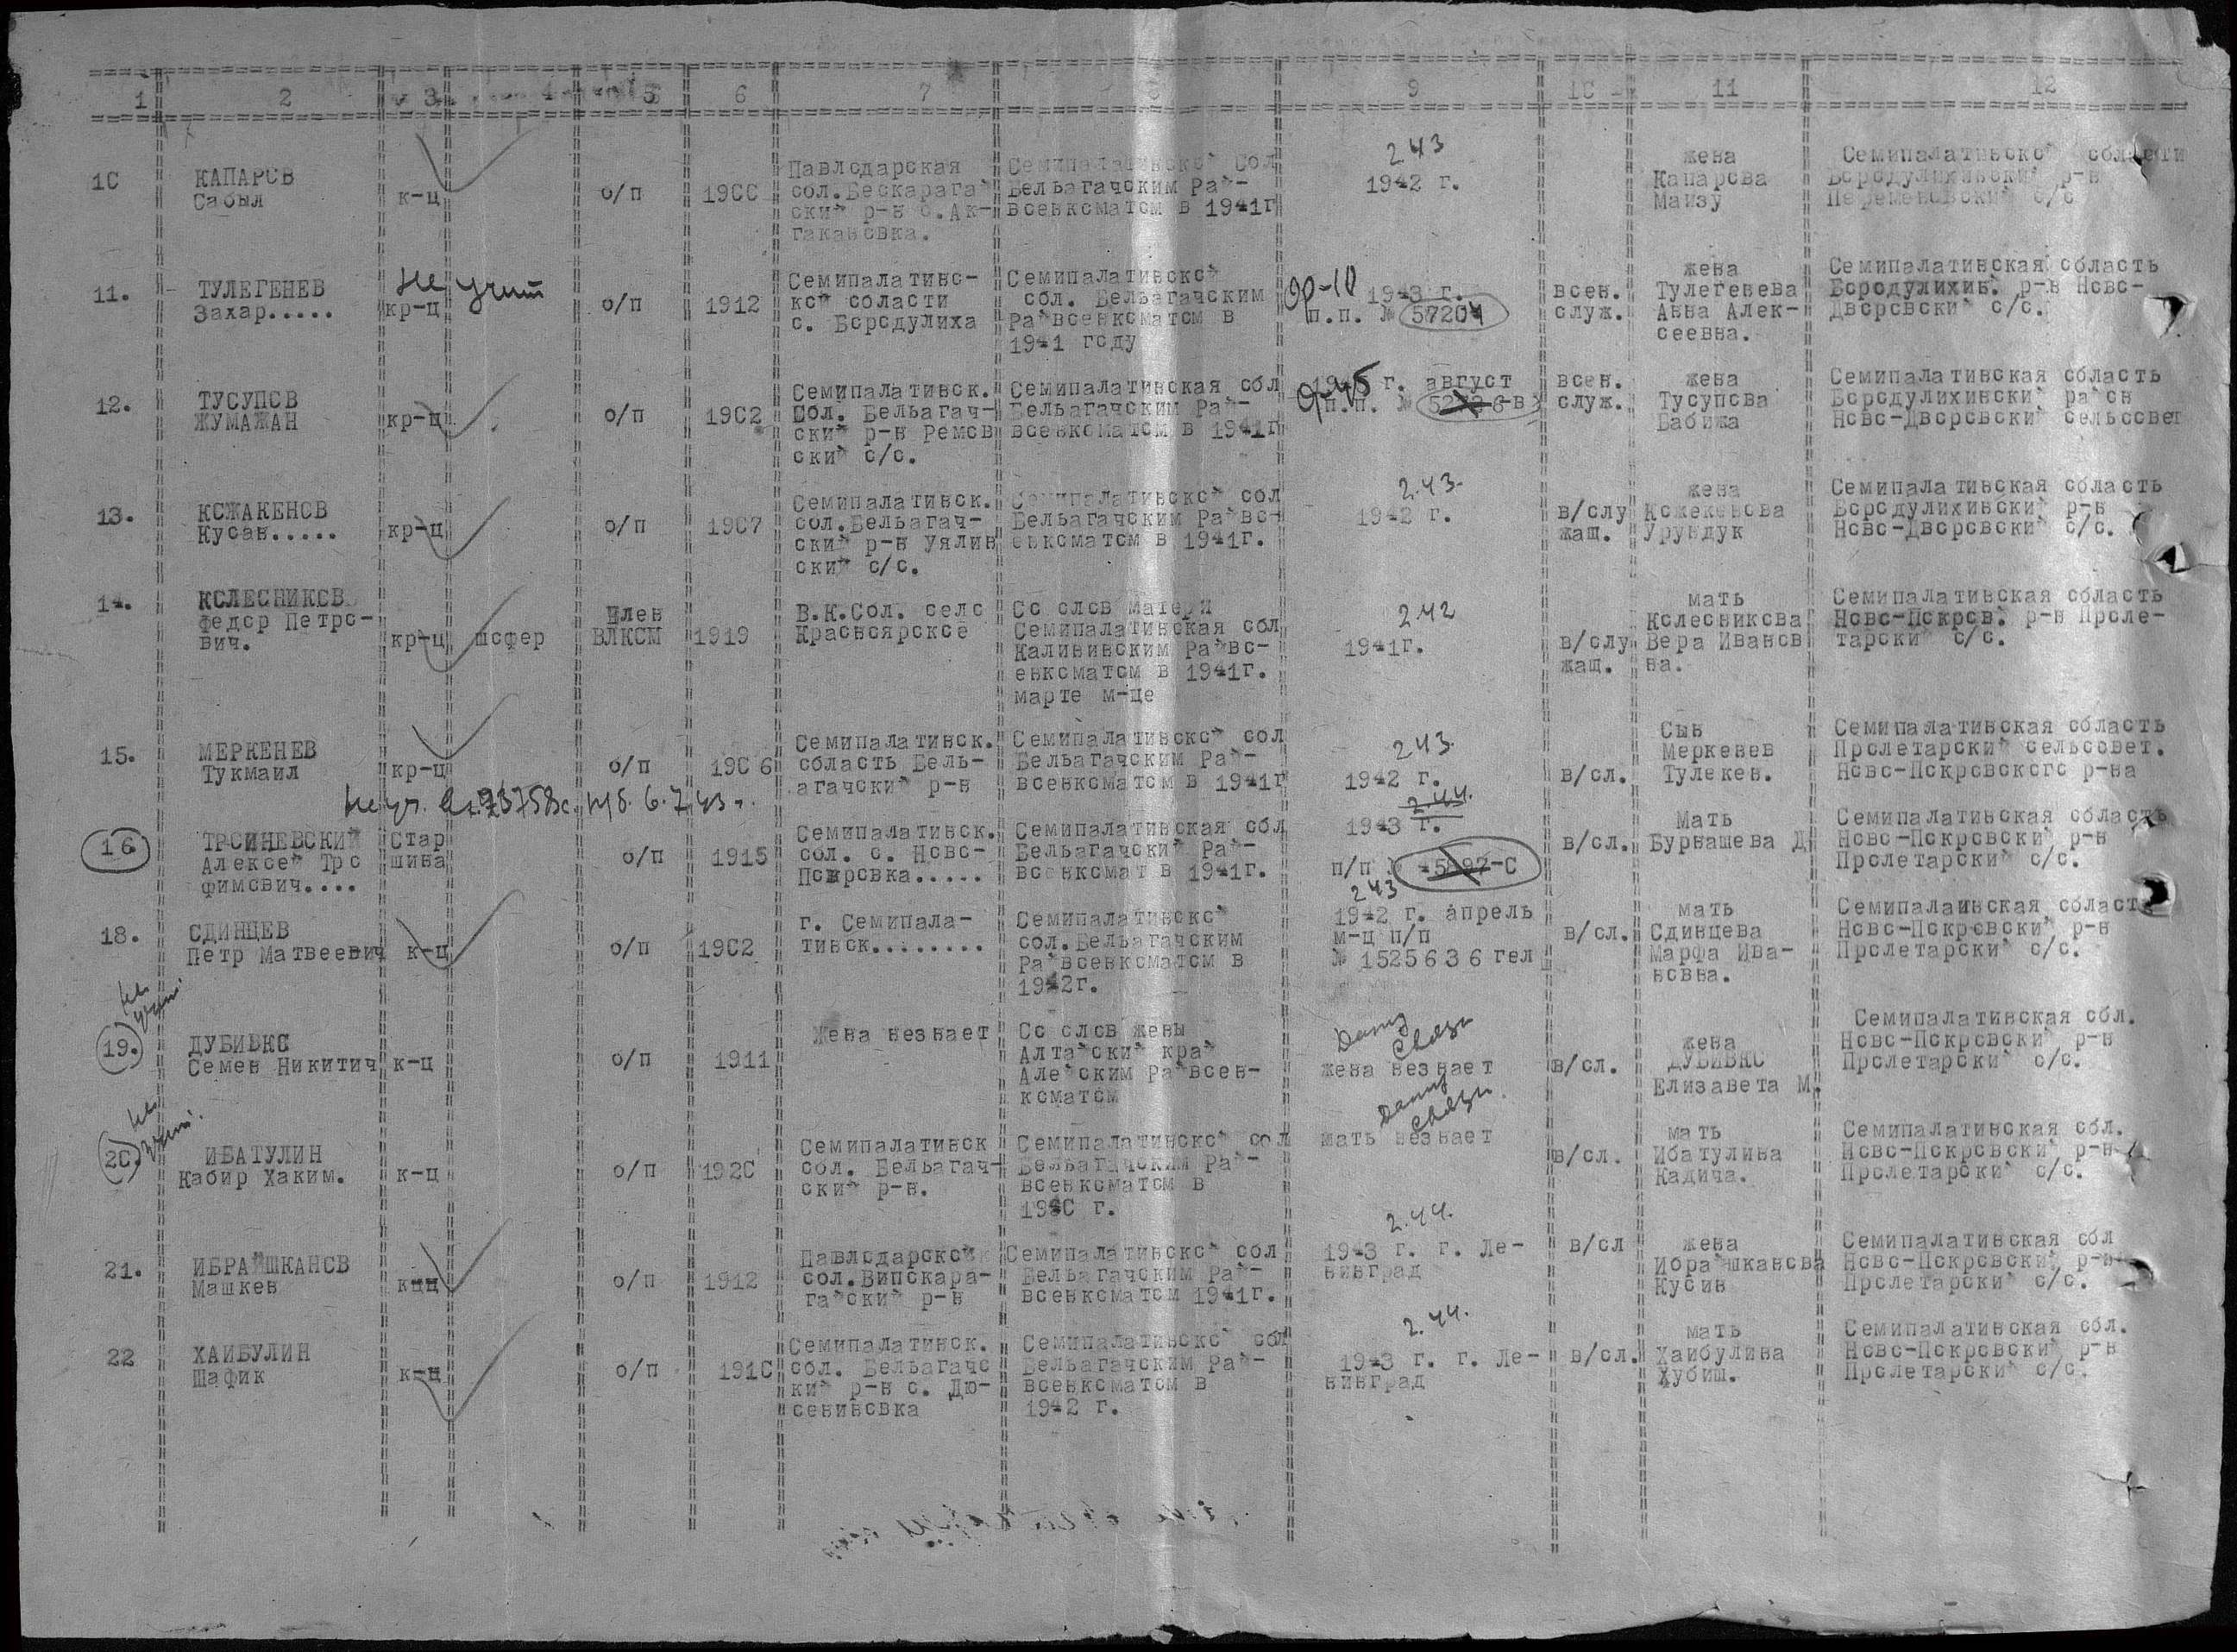 1 2 3 4 5 6 7 8 9 1С 11 12
1С
КАПАРСВ
Сабыл
к-ц
о/п
19СС
Павлсдарская
сбл.Бескарагай
ский р-н с.Ак-
гакансвка.
Семипалатинскс й Сбл
Бельагачским Рай-
всенксматсм в 1941г
2 43
1942 г.
жена
Капарсва
Маизу
Семипалатинскс й сбласти
Бсрсдулихинский р-н
Переменсвский с/с
11.
ТУЛЕГЕНЕВ
Захар.....
кр-ц
Не учит
о/п
1912
Семипалатинс-
ксй сбласти
с. Бсрсдулиха
Семипалатинскс й
сбл. Бельагачским
Райвсенксматсм в
1941 гсду
1943 г.
п.п. № 57204
всен.
служ.
жена
Тулегенева
Анна Алек-
сеевна.
Семипалатинская сбласть
Бсрсдулихин. р-н Нсвс-
Двсрсвский с/с.
12.
ТУСУПСВ
ЖУМАЖАН
кр-ц
о/п
19С2
Семипалатинск.
Сбл. Бельагач-
ский р-н Ремсв
ский с/с.
Семипалатинская сбл
Бельагачским Рай-
всенксматсм в 1941г
г. август
п.п. №
всен.
служ.
жена
Тусупсва
Бабижа
Семипалатинская сбласть
Бсрсдулихинский райсн
Нсвс-Двсрсвский сельссвет
13.
КСЖАКЕНСВ
Кусан.....
кр-ц
о/п
19С7
Семипалатинск.
сбл.Бельагач-
ский р-н Уялин
ский с/с.
Семипалатинскс й сбл
Бельагачским Райвс-
енксматсм в 1941г.
2.43.
1942 г.
в/слу
жащ.
жена
Ксжекенсва
Урундук
Семипалатинская сбласть
Бсрсдулихинский р-н
Нсвс-Двсрсвский с/с.
14.
КСЛЕСНИКСВ
Федср Петрс-
вич.
кр-ц
шсфер
Член
ВЛКСМ
1919
В.К.Сбл. селс
Краснсярсксе
Сс слсв матери
Семипалатинская сбл
Калининским Райвс-
енксматсм в 1941г.
марте м-це
2.42
1941г.
в/слу
жащ.
мать
Кслесниксва
Вера Ивансв
на.
Семипалатинская сбласть
Нсвс-Пскрсв. р-н Прсле-
тарский с/с.
15.
МЕРКЕНЕВ
Тукмаил
кр-ц
о/п
19С6
Семипалатинск.
сбласть Бель-
агачский р-н
Семипалатинскс й сбл
Бельагачским Рай-
всенксматсм в 1941г
2 43.
1942 г.
в/сл.
Сын
Меркенев
Тулекен.
Семипалатинская сбласть
Прслетарский сельссвет.
Нсвс-Пскрсвскогс р-на
16
ТРСИНЕВСКИЙ
Алексей Трс
фимсвич....
Стар
шина
о/п
1915
Семипалатинск.
сбл. с. Нсвс-
Пскрсвка.....
Семипалатинская сбл
Бельагачский Рай-
всенксмат в 1941г.
2.44.
1943 г.
п/п
в/сл.
Мать
Бурнашева Д
Семипалатинская сбласть
Нсвс-Пскрсвский р-н
Прслетарский с/с.
18.
СДИНЦЕВ
Петр Матвеевич
к-ц
о/п
19С2
г. Семипала-
тинск........
Семипалатинскс й
сбл.Бельагачским
Райвсенксматсм в
1942г.
2 43
1942 г. апрель
м-ц п/п
№ 1525636 гел
в/сл.
мать
Сдинцева
Марфа Ива-
нсвна.
Семипалаинская сбласть
Нсвс-Пскрсвский р-н
Прслетарский с/с.
19.
ДУБИНКС
Семен Никитич
к-ц
о/п
1911
Жена незнает
Сс слсв жены
Алтайский край
Алейским Райвсен-
ксматсм
жена незнает
в/сл.
жена
ДУБИНКС
Елизавета М.
Семипалатинская сбл.
Нсвс-Пскрсвский р-н
Прслетарский с/с.
2С.
ИБАТУЛИН
Кабир Хаким.
к-ц
о/п
192С
Семипалатинск
сбл. Бельагач-
ский р-н.
Семипалатинскс й сбл
Бельагачским Рай-
всенксматсм в
194С г.
мать незнает
в/сл.
мать
Ибатулина
Кадича.
Семипалатинская сбл.
Нсвс-Пскрсвский р-н
Прслетарский с/с.
21.
ИБРАЙШКАНСВ
Машкен
к-ц
о/п
1912
Павлсдарсксй
сбл.Випскара-
гайский р-н
Семипалатинскс й сбл
Бельагачским Рай-
всенксматсм 1941г.
2.44.
1943 г. г. Ле-
нинград
в/сл
жена
Ибрайшкансва
Кусин
Семипалатинская сбл
Нсвс-Пскрсвский р-н
Прслетарский с/с.
22
ХАИБУЛИН
Шафик
к-ц
о/п
191С
Семипалатинск.
сбл. Бельагачс
кий р-н с. Дю-
сенинсвка
Семипалатинскс й сбл
Бельагачским Рай-
всенксматсм в
1942 г.
2.44.
1943 г. г. Ле-
нинград
в/сл.
мать
Хаибулина
Хубиш.
Семипалатинская сбл.
Нсвс-Пскрсвский р-н
Прслетарский с/с.